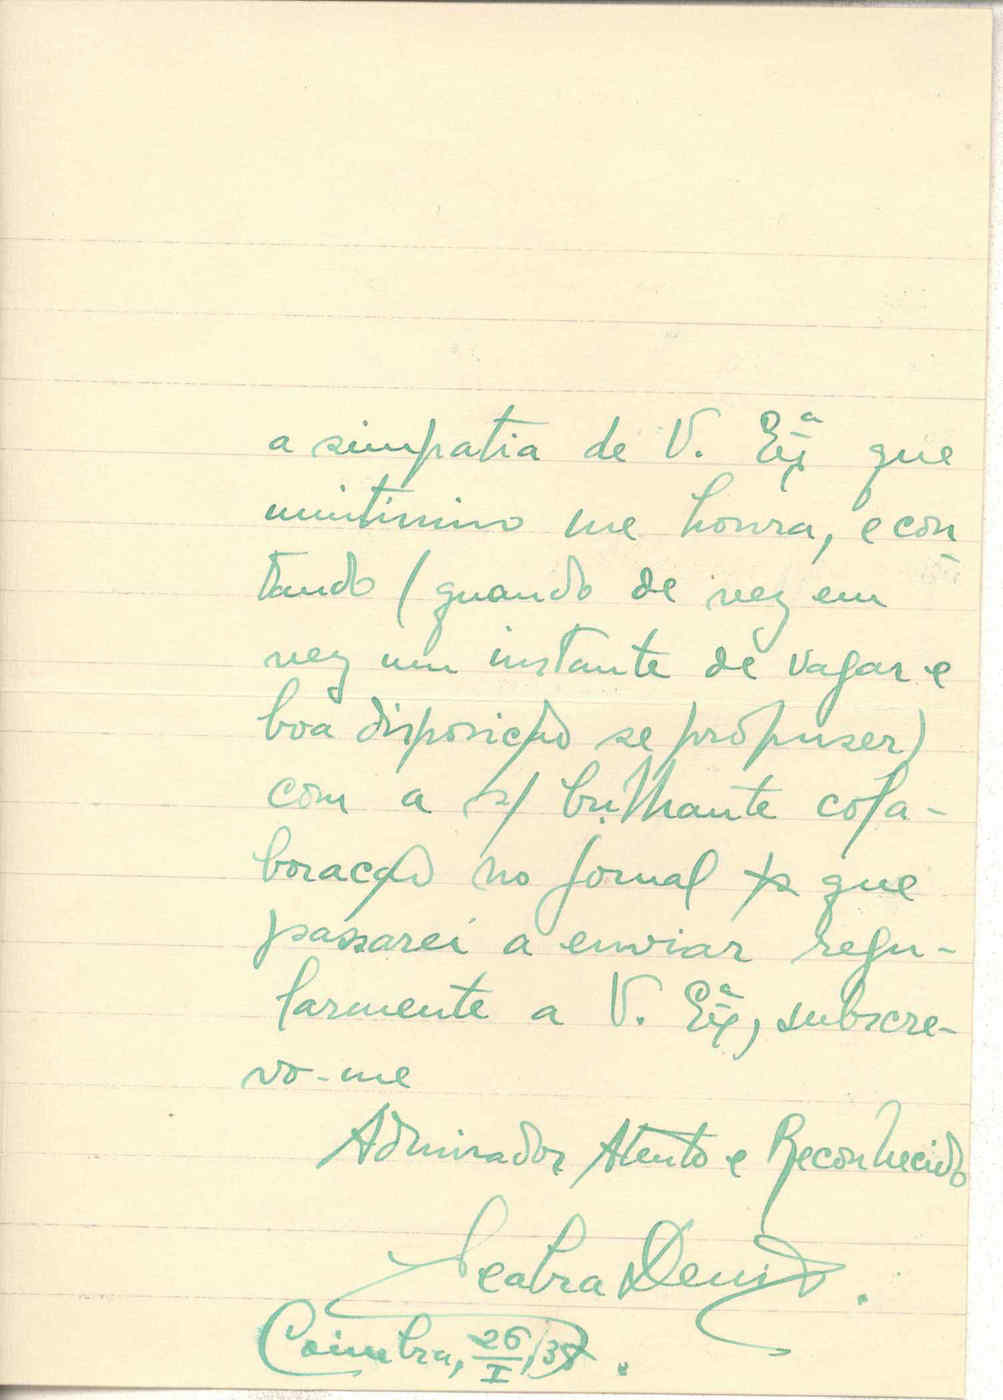 a simpatia de V. Exª que
muitissimo me honra, e con
tando (quando de vez em
vez um instante de vagar e
boa disposição se propuser)
com a s/ brilhante cola-
boração no jornal que
passarei a enviar regu-
larmente a V. Exª, subscre-
vo-me
Admirador Atento e Reconhecido
Seabra Deniz.
Coimbra, 26/I/